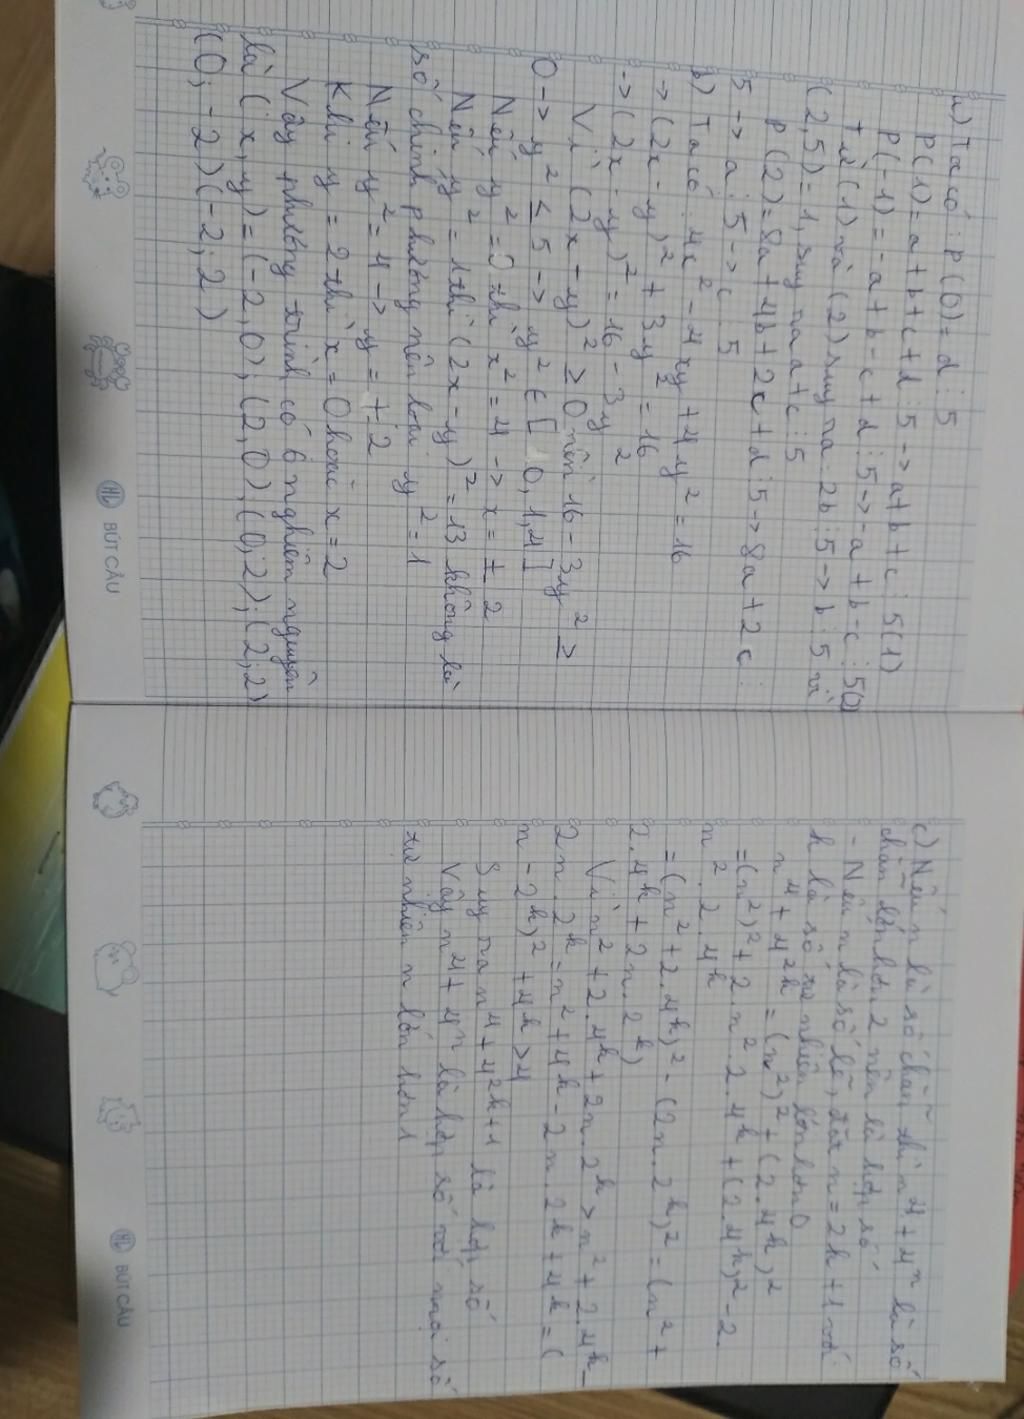 a) Ta có: P(0) = d ⋮ 5
P(1) = a + b + c + d ⋮ 5 -> a + b + c ⋮ 5 (1)
P(-1) = -a + b - c + d ⋮ 5 -> -a + b - c ⋮ 5 (2)
Từ (1) và (2) suy ra: 2b ⋮ 5 -> b ⋮ 5 vì
(2,5) = 1, suy ra a + c ⋮ 5
P(2) = 8a + 4b + 2c + d ⋮ 5 -> 8a + 2c ⋮
5 -> a ⋮ 5 -> c ⋮ 5
b) Ta có: 4x² - 4xy + 4y² = 16
-> (2x - y)² + 3y² = 16
-> (2x - y)² = 16 - 3y²
Vì (2x - y)² ≥ 0 nên 16 - 3y² ≥
0 -> y² ≤ 5 -> y² ∈ [0, 1, 4]
Nếu y² = 0 thì x² = 4 -> x = ± 2
Nếu y² = 1 thì (2x - y)² = 13 không là
số chính phương nên loại y² = 1
Nếu y² = 4 -> y = ± 2
Khi y = 2 thì x = 0 hoặc x = 2
Vậy phương trình có 6 nghiệm nguyên
là (x, y) = (-2, 0); (2, 0); (0; 2); (2; 2)
(0; -2) (-2; 2)
BÚT CÂU
c) Nếu n là số chẵn thì n⁴ + 4ⁿ là số
chẵn lớn hơn 2 nên là hợp số
- Nếu n là số lẻ, đặt n = 2k + 1 với
k là số tự nhiên lớn hơn 0
n⁴ + 4²ᵏ = (n²)² + (2.4ᵏ)²
= (n²)² + 2.n².2.4ᵏ + (2.4ᵏ)² - 2.
n².2.4ᵏ
= (n² + 2.4ᵏ)² - (2n.2ᵏ)² = (n² +
2.4ᵏ + 2n.2ᵏ)
Vì n² + 2.4ᵏ + 2n.2ᵏ > n² + 2.4ᵏ -
2n.2ᵏ = n² + 4ᵏ - 2n.2ᵏ + 4ᵏ = (
n - 2ᵏ)² + 4ᵏ > 4
Suy ra n⁴ + 4²ᵏ⁺¹ là hợp số
Vậy n⁴ + 4ⁿ là hợp số với mọi số
tự nhiên n lớn hơn 1
BÚT CÂU